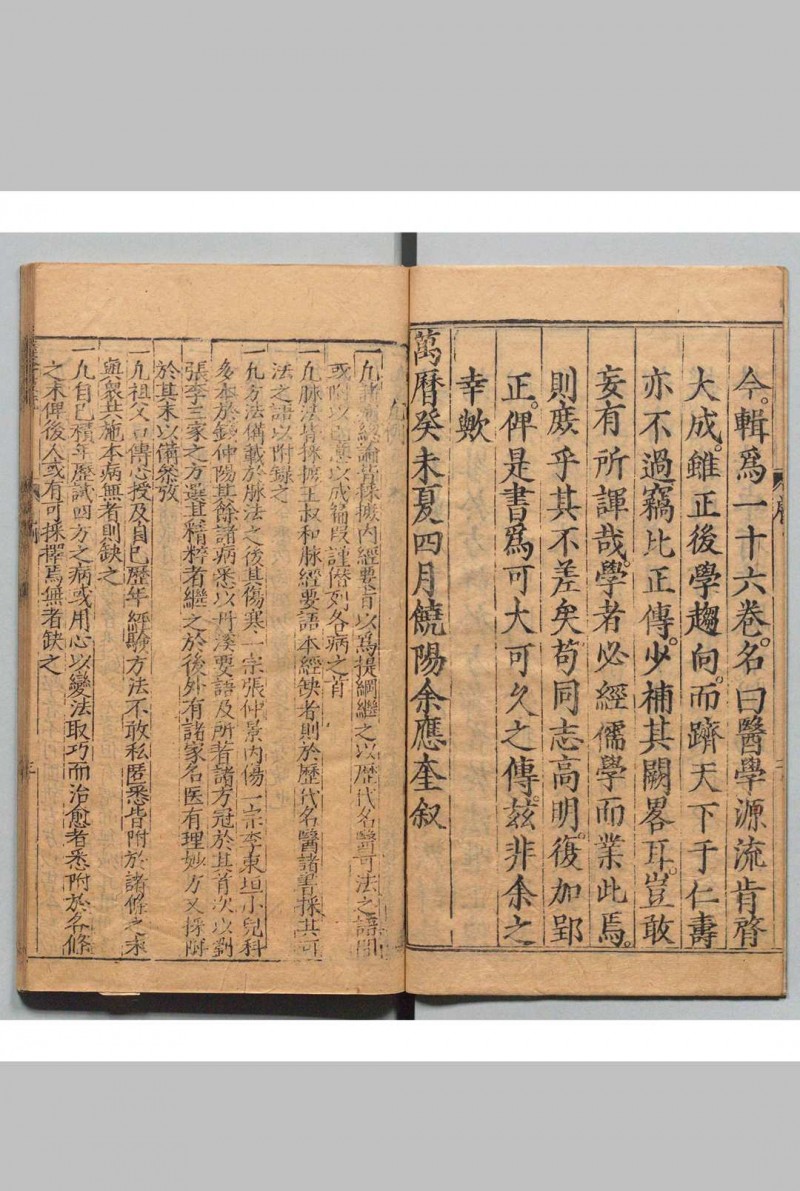 今輯爲一十六卷名曰醫學源流肯綮
大成雖正後學趨向而躋天下于仁壽
亦不過竊比正傳少補其闕畧耳豈敢
妄有所譁哉學者必經儒學而業此焉
則庻乎其不差矣苟同志高明復加郢
正俾是書爲可大可久之傳兹非余之
幸歟
萬曆癸未夏四月饒陽余應奎叙
凡例
一凡諸病總論皆採摭内經要旨以爲提綱繼之以歷代名醫可法之語間
或附以己意以成篇段謹僣列各病之首
一凡脉法皆採摭王叔和脉經要語本經缺者則於歷代名醫諸書採其可
法之語以附錄之
一凢方法備載於脉法之後其傷寒一宗張仲景内傷一宗李東垣小兒科
多本於錢仲陽其餘諸病悉以丹溪要語及所著諸方冠於其首次以劉
張李三家之方選其精粹者繼之於後外有諸家名医有理妙方又採附
於其末以備叅攷
一凢祖父口傳心授及自己歷年經驗方法不敢私匿悉皆附於諸條之末
與衆共施本病無者則缺之
一凢自己積年歷試四方之病或用心以變法取巧而治愈者悉附於各條
之末俾後人或有可採擇焉無者缺之